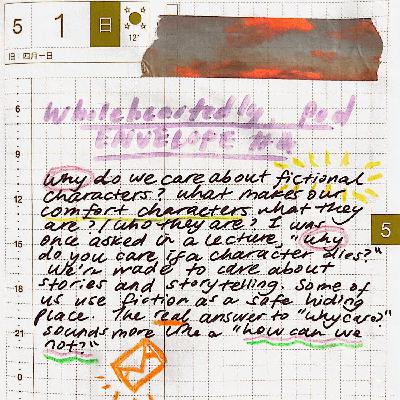 5 1 日
12°
旧 四月一日
wholeheartedly, pod
ENVELOPE #a
6
9
12
15
18
21
0
why do we care about fictional
characters? what makes our
comfort characters what they
are? / who they are? I was
once asked in a lecture, "why
do you care if a character dies?"
we're made to care about
stories and storytelling. some of
us use fiction as a safe hiding
place. The real answer to "why care?"
sounds more like a "how can we
not?"
5